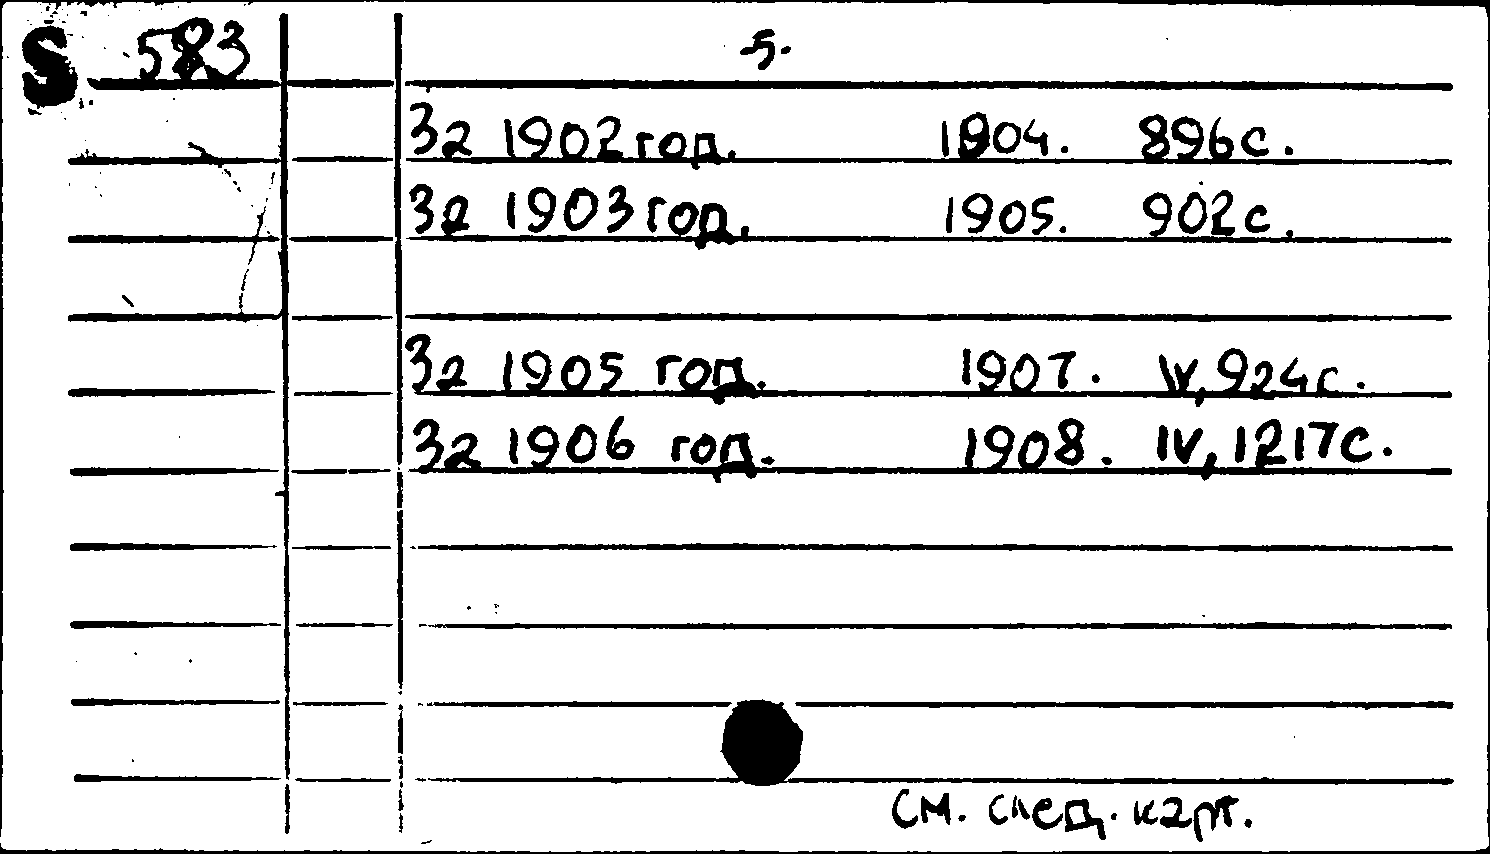 S 583 -5-
За 1902 год. 1904. 896с.
За 1903 год. 1905. 902с.
За 1905 год. 1907. IV, 924с.
За 1906 год. 1908. IV, 1217с.
см. след. карт.